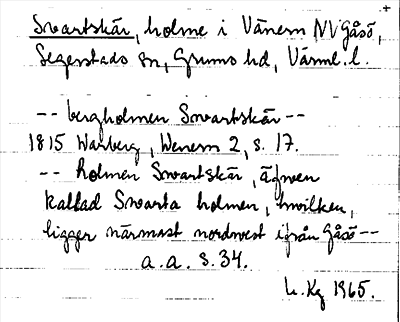 +
Svartskär, holme i Vänern NV Gåsö,
Segerstads sn, Grums hd, Värml. l.
-- bergholmen Swartskär --
1815 Warberg, Wenern 2, s. 17.
-- Holmen Swartskär, äfwen
kallad Swarta holmen, hwilken,
ligger närmast nordwest ifrån Gåsö --
a.a. s. 34.
L. Kg 1965.